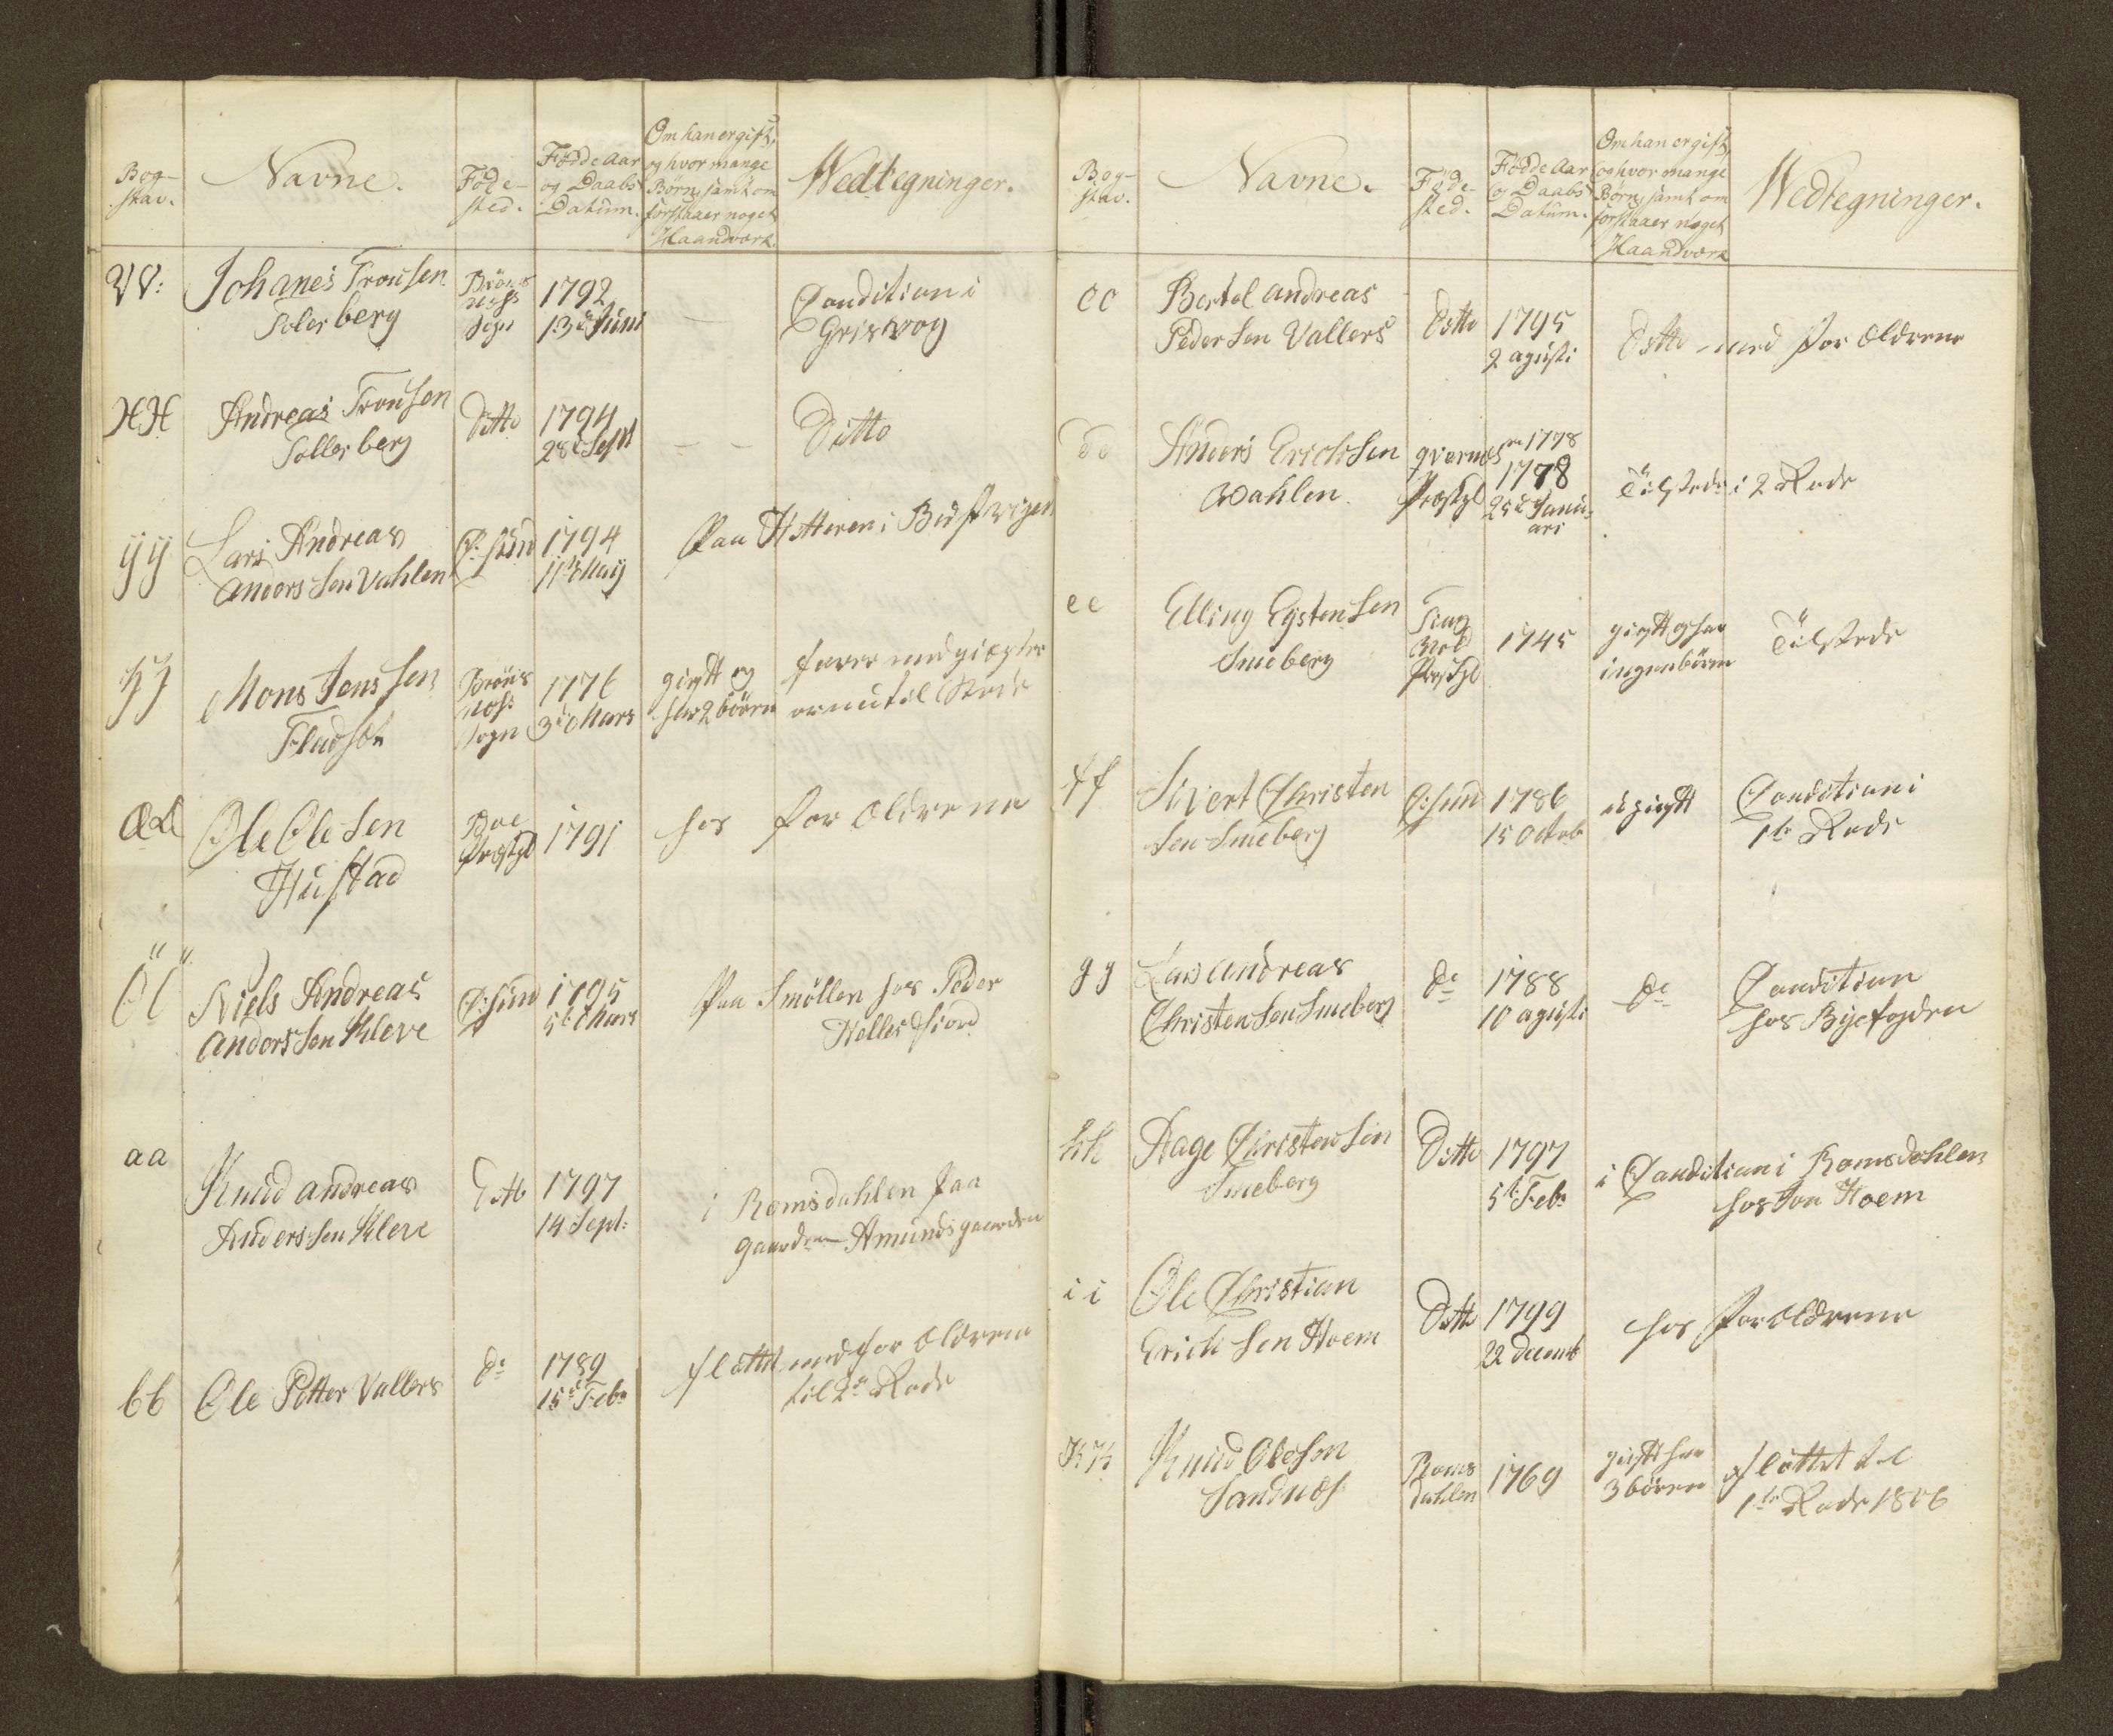 Bog-
stav.
Navne.
Föde-
sted.
Födde Aar
og Daabs
Datum.
Om han er gift,
og hvor mange
Børn, samt om
forstaaer noget
Haandværk.
Wedtegninger.
VV:
Johanes Tronsen
Solerberg
Bröns
nøss
sogn
1792
13de Juni
—
Condition i
Grisvog
XX
Andreas Tronsen
Sollerberg
Ditto
1794
28de Sept
— —
Ditto
ÿÿ
Lars Andreas
Anders sen Vahlen
C: sund
1794
11te Maij
Paa Hitteren i
Mons Jens sen
Fladset
Bröns
nøs:
sogn
1776
3de Mars
gieft og
har 2 börn
farer med
er nu til Stede
ÆÆ
Ole Olesen
Hustad
Boe
Præstgl
1791
hos for Oldrene
ÖÖ
Niels Andreas
Anders sen Kleve
C: sund
1795
5te Mars
Paa Smøllen hos Peder
aa
Knud Andreas
Anders sen Kleve
Ditto
1797
14 Sept:
i Romsdahlen paa
gaarden Amundsgaarden
bb
Ole Petter Vallers
do
1789
15de Feb:
fløttet med for Oldrene
til 2de Rode
Bog-
stav.
Navne.
Föde-
sted.
Födde Aar
og Daabs
Datum.
Om han er gift,
og hvor mange
Børn, samt om
forstaaer noget
Haandværk
Wedtegninger.
cc
Bertel Andreas
Peder sen Vallers
Ditto
1795
2 agusti
Ditto med for Oldrene
dd
Anders Erichsen
Wahlen
qvernes
Præstgl
1778
1778
25de Janu-
ari
Tilstede i 2 Rode
ee
Elling Eystensen
Smeberg
Ting
Præstgl
1745
gieft og har
ingen börn
Tilstede
ff
Sivert Christen
sen Smeberg
C: sund
1786
15 Octob
ugieft
Condition i
1te Rode
gg
Lars Andreas
Christensen Smeberg
do
1788
10 agusti
do
Condition
hos Byefogden
hh
Aage Christensen
Smeberg
Ditto
1797
5te Feb:
i Condition i Romsdahlen
hos Jon Hoem
ii
Ole Christian
Erich sen Hoem
Ditto
1799
22 Decemb
hos for Oldrene
KK
Knud Olesen
Sandnæs
Roms
dahlen
1769
gieft har
3 börn
fløttet til
1te Rode 1806